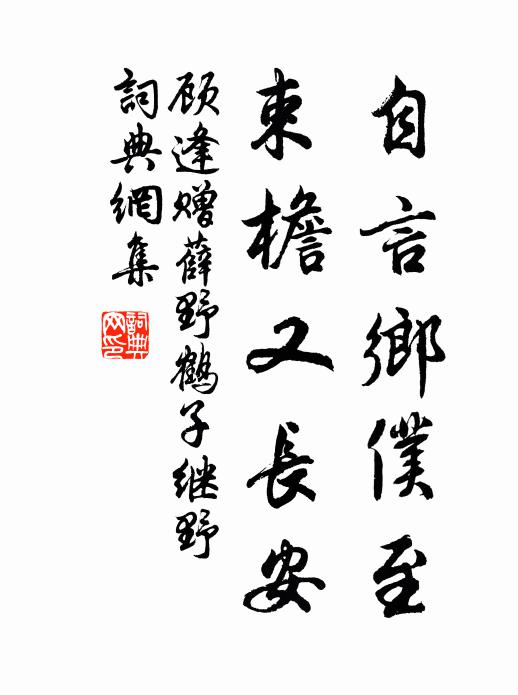 自言鄉僕至
束檐又長安
顾逢赠薛野鶴子继野
詞典網集
詞典
网印